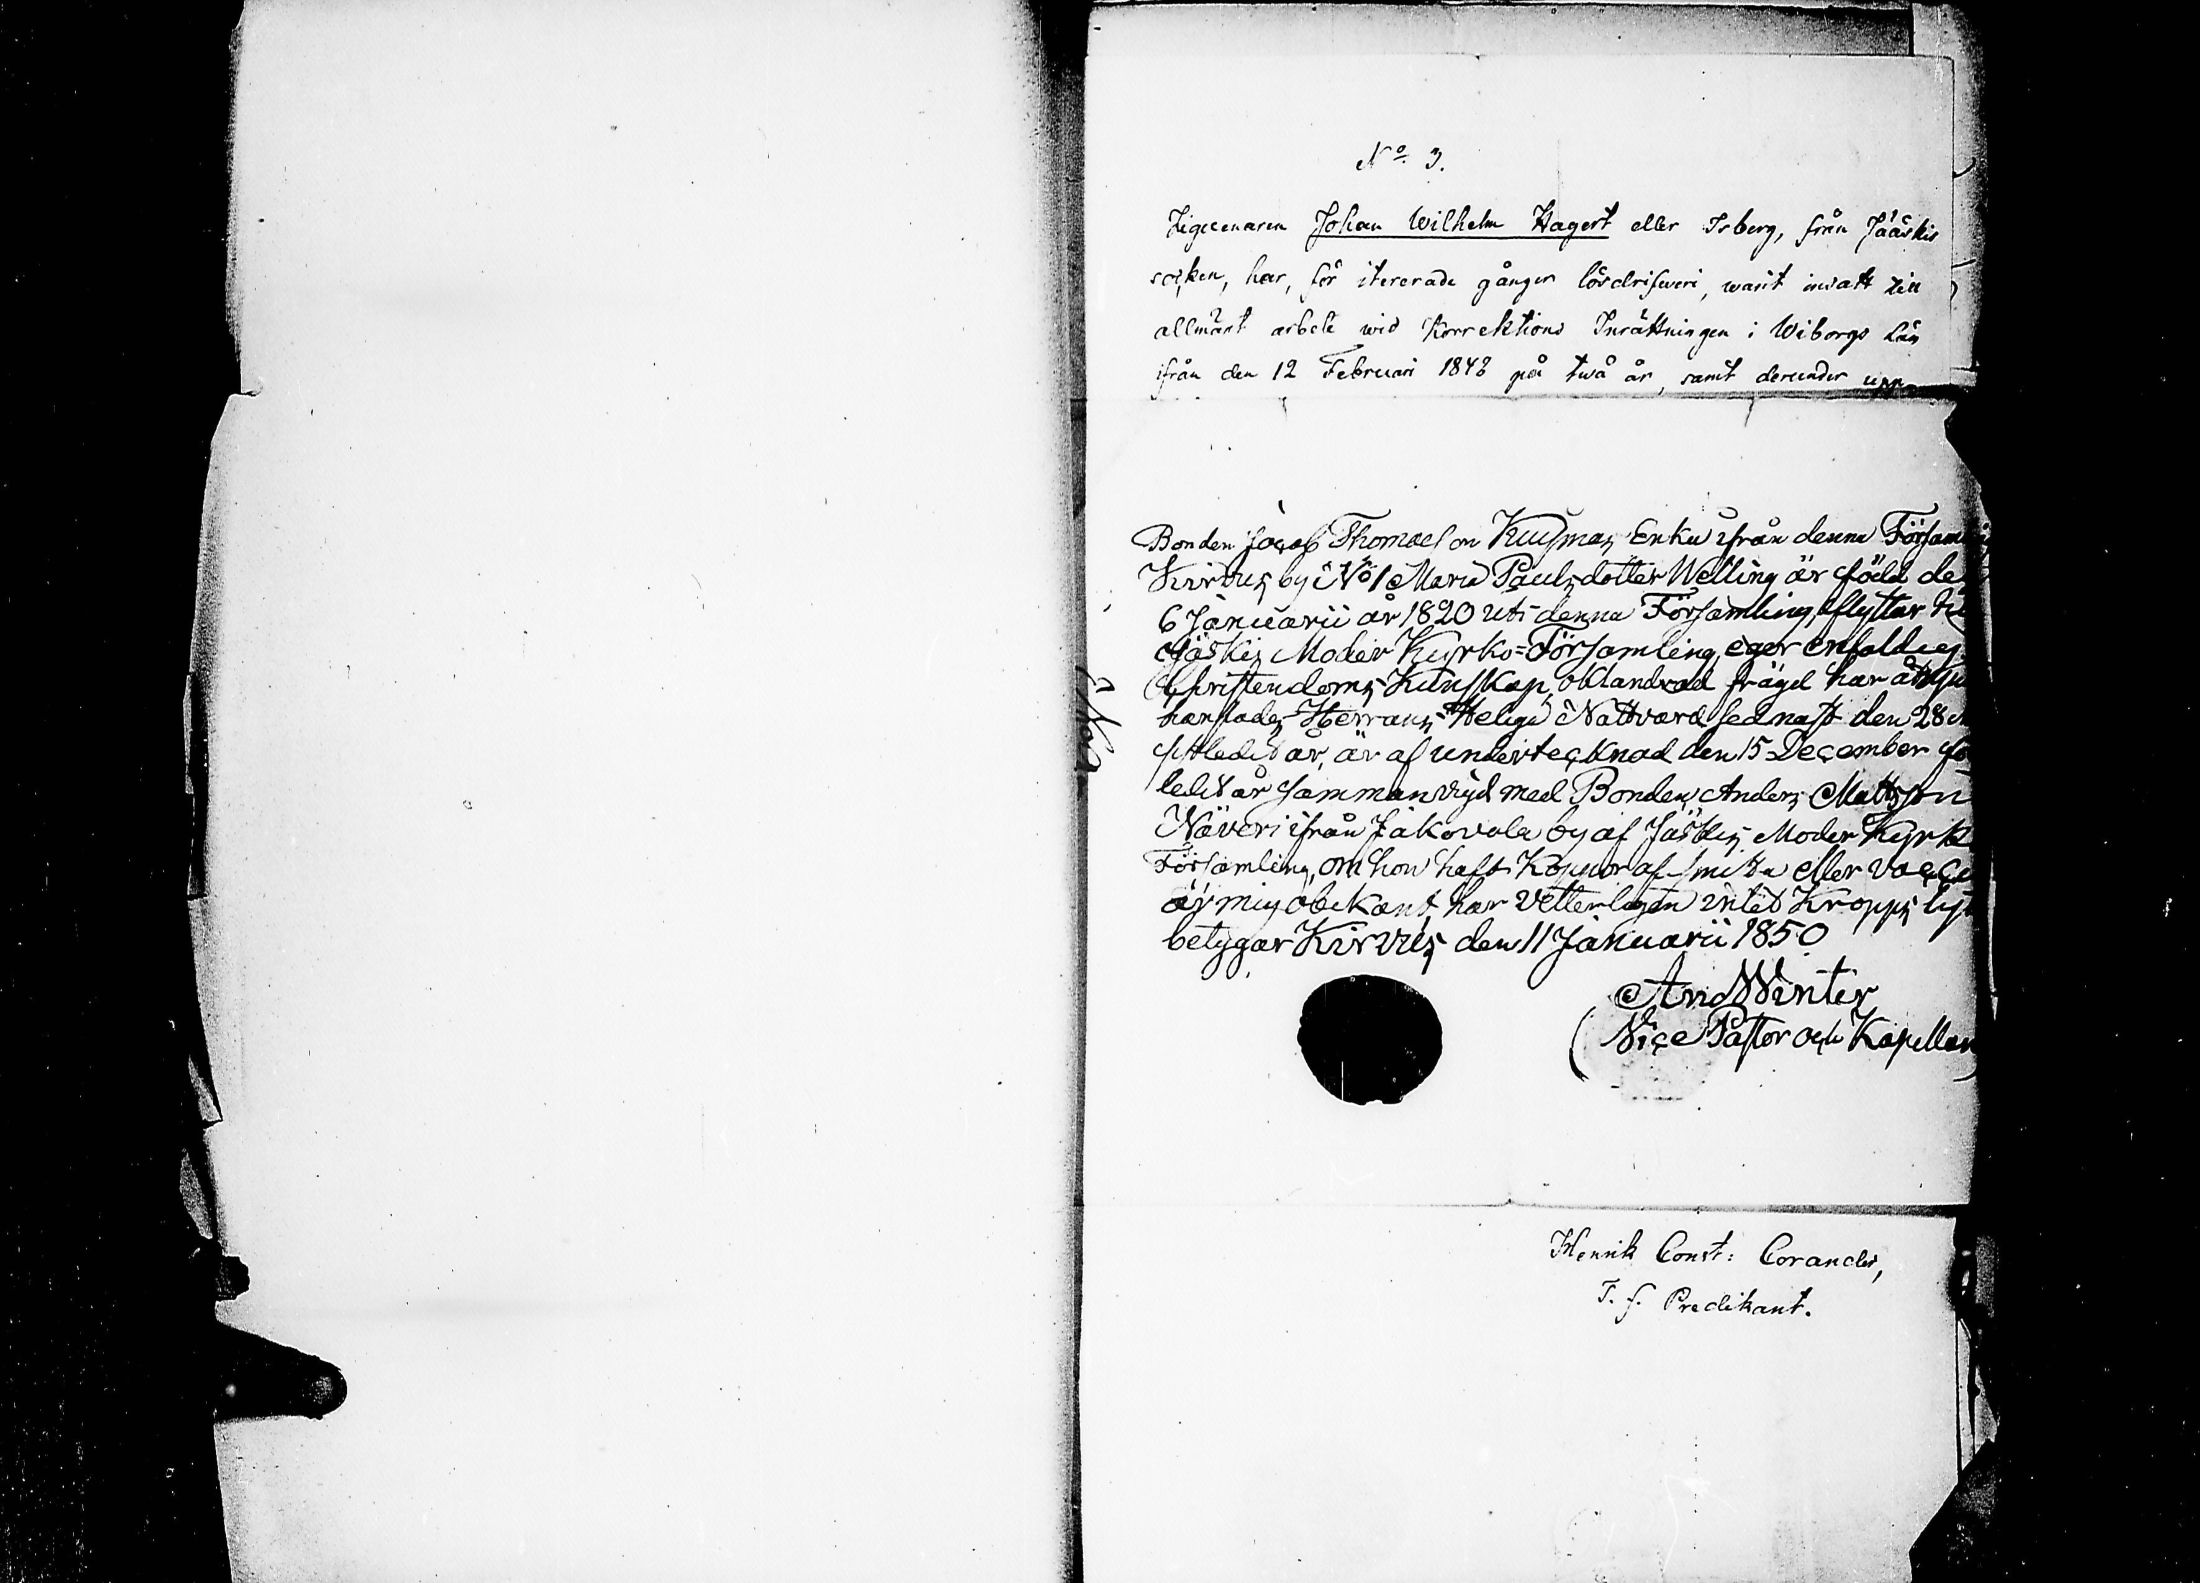 No 3.
Zigeunaren Johan Wilhelm Hagert eller Isberg, från Jääskis
socken, har, för itererade gånger lösdrifveri, warit insatt till
allmänt arbete wid Korrektions Inrättningen i Wiborgs Län
ifrån den 12 Februari 1848 på twå år, samt derunder upp-
Bonden Jacob Thomasson Kuismas Enka ifrån denna Församl
Kirvus by No 1 Maria Paulsdotter Welling är född de
6 Januarii år 1820 uti denna Församling, flyttar ti
Jäskis Moder Kyrko=Församling, eger enfaldig
Christendoms Kunskap, oklandrad frägd har
Herrans Heliga Nattvard sednast den 28
år, är af undertecknad den 15 December fö
ledit år sammanvigd med Bonden Anders Mattsson
Näveri ifrån Jäkovala by af Jäskis Moder Kyrk
Församling, om hon haft Koppor af smitta eller vacci
är mig obekant, har vetterligen intet Kropps lyt
betygar Kirvus den 11 Januarii 1850
And Winter
Vice Pastor och Kapellan
Henrik Const: Corander,
T. f. Predikant.